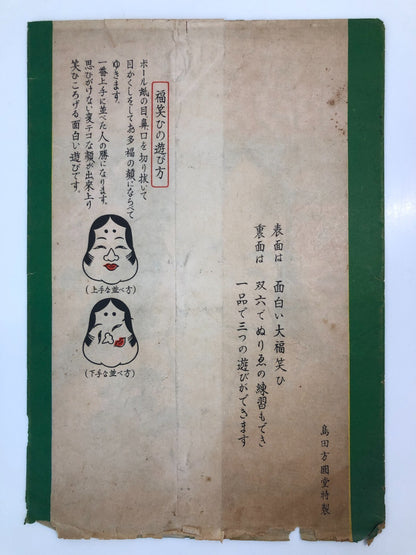 表面は 面白い大福笑ひ
裏面は 双六でぬりゑの練習もでき
一品で三つの遊びができます
島田方圓堂特製
福笑ひの遊び方
ボール紙の目鼻口を切り抜いて
目かくしをしてお多福の顔にならべて
ゆきます。
一番上手に並べた人の勝になります。
思ひがけない変テコな顔が出来上り
笑ひころげる面白い遊びです。
(上手な並べ方)
(下手な並べ方)